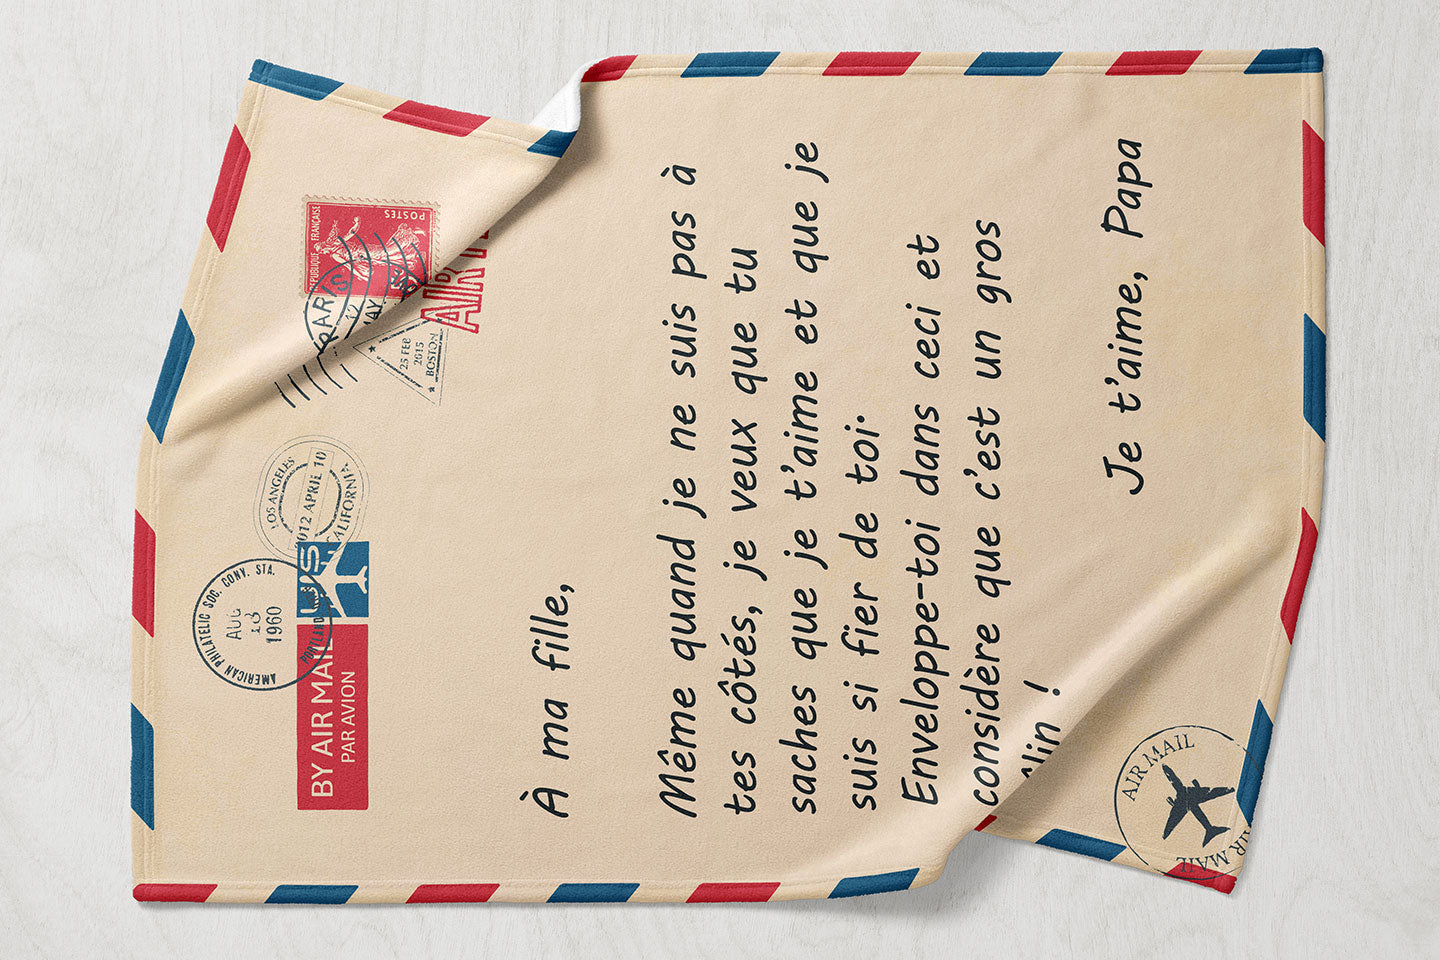 BY AIR MAIL
PAR AVION
US
AMERICAN PHILATELIC SOC. CONV. STA.
AUG
13
1960
LOS ANGELES
012 APRIL 10
CALIFORNIA
POSTES
PARIS
12
25 FEB
2015
BOSTON
AIR
À ma fille,
Même quand je ne suis pas à
tes côtés, je veux que tu
saches que je t'aime et que je
suis si fier de toi.
Enveloppe-toi dans ceci et
considère que c'est un gros
câlin !
Je t'aime, Papa
AIR MAIL
AIR MAIL